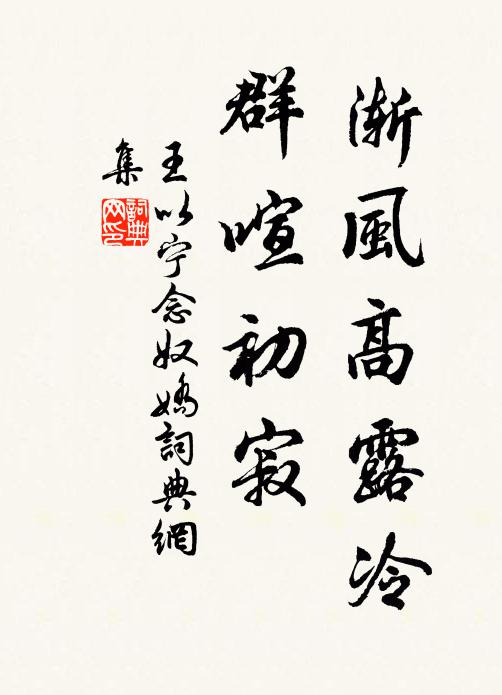 漸風高露冷
群喧初寂
王以宁念奴嬌詞典網
集
詞典
网印